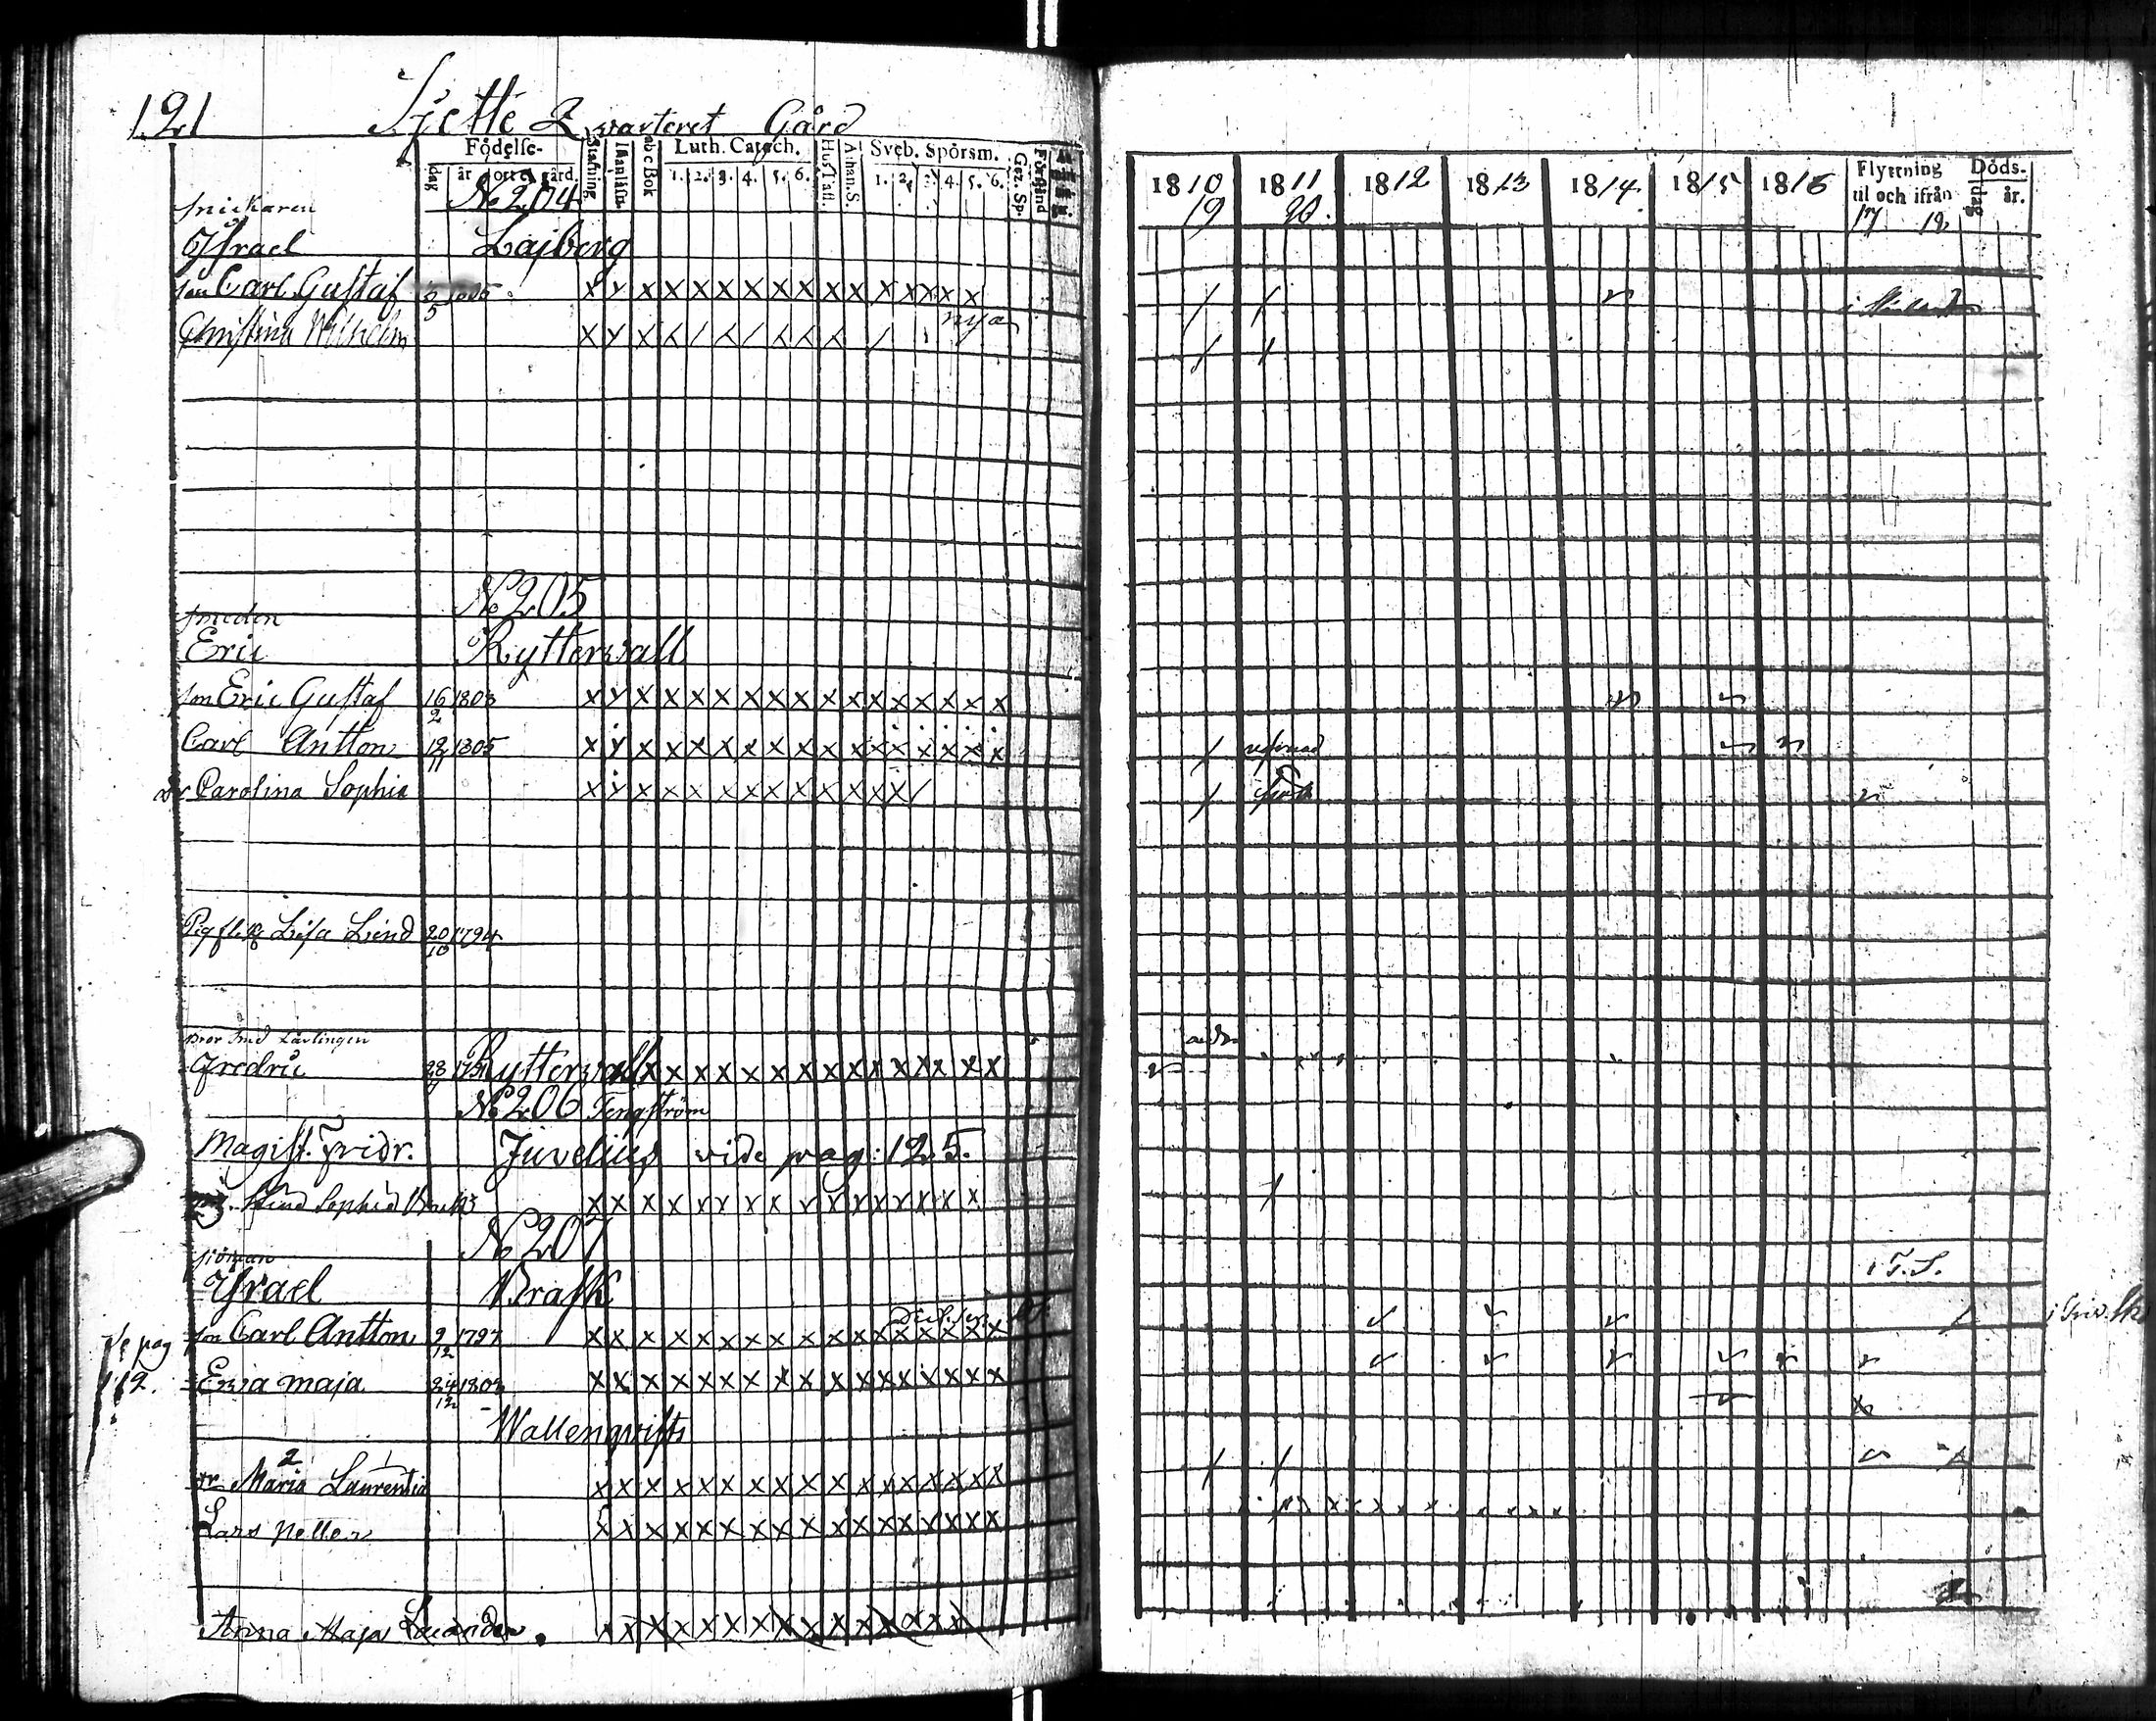 121 Sjette Qvarteret Gård
Födelse- Stafning Innanläsn. abcBok Luth. Catech. Hus Tafl. Athan. S. Sveb. Spörsm. Gez. Sp.
dag år ort el. gård. 1. 2. 3. 4. 5. 6. 1. 2. 3. 4. 5. 6.
1810 1811 1812 1813 1814 1815 1816 Flyttning til och ifrån Döds- dag år.
19 20. 17 18
snickaren No 204
Israel Lajberg
son Carl Gustaf
Christina Wilhelm nya
No 205
smeden
Eric Ryttervall
son Eric Gustaf 16/2 1803
Carl Antton 12/11 1805
dr Carolina Sophia
Lisa Lind 20/10 1794
Bror smed Lärlingen
Fredric 28 Ryttervall
No 206 Tengström
Magist. Fridr. Juvelius vide pag: 125.
Sophia
No 207
sjöman i T. S.
Israel Brask
son Carl Antton 9/12 1797
Ewa Maja 24/12 1803
pag 112.
Wallenqvists
2 1
dr Maria Laurentia
Lars Petter
Anna Maja